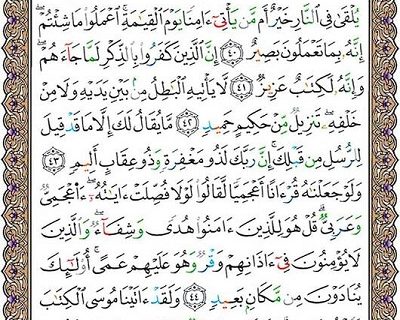 يُلْقَىٰ فِى ٱلنَّارِ خَيْرٌ أَم مَّن يَأْتِىٓ ءَامِنًا يَوْمَ ٱلْقِيَٰمَةِ ۚ ٱعْمَلُوا۟ مَا شِئْتُمْ ۖ
إِنَّهُۥ بِمَا تَعْمَلُونَ بَصِيرٌ ٤٠ إِنَّ ٱلَّذِينَ كَفَرُوا۟ بِٱلذِّكْرِ لَمَّا جَآءَهُمْ ۖ
وَإِنَّهُۥ لَكِتَٰبٌ عَزِيزٌ ٤١ لَّا يَأْتِيهِ ٱلْبَٰطِلُ مِنۢ بَيْنِ يَدَيْهِ وَلَا مِنْ
خَلْفِهِۦ ۖ تَنزِيلٌ مِّنْ حَكِيمٍ حَمِيدٍ ٤٢ مَّا يُقَالُ لَكَ إِلَّا مَا قَدْ قِيلَ
لِلرُّسُلِ مِن قَبْلِكَ ۚ إِنَّ رَبَّكَ لَذُو مَغْفِرَةٍ وَذُو عِقَابٍ أَلِيمٍ ٤٣
وَلَوْ جَعَلْنَٰهُ قُرْءَانًا أَعْجَمِيًّا لَّقَالُوا۟ لَوْلَا فُصِّلَتْ ءَايَٰتُهُۥٓ ۖ ءَا۬عْجَمِىٌّ
وَعَرَبِىٌّ ۗ قُلْ هُوَ لِلَّذِينَ ءَامَنُوا۟ هُدًى وَشِفَآءٌ ۖ وَٱلَّذِينَ
لَا يُؤْمِنُونَ فِىٓ ءَاذَانِهِمْ وَقْرٌ وَهُوَ عَلَيْهِمْ عَمًى ۚ أُو۟لَٰٓئِكَ
يُنَادَوْنَ مِن مَّكَانٍۭ بَعِيدٍ ٤٤ وَلَقَدْ ءَاتَيْنَا مُوسَى ٱلْكِتَٰبَ